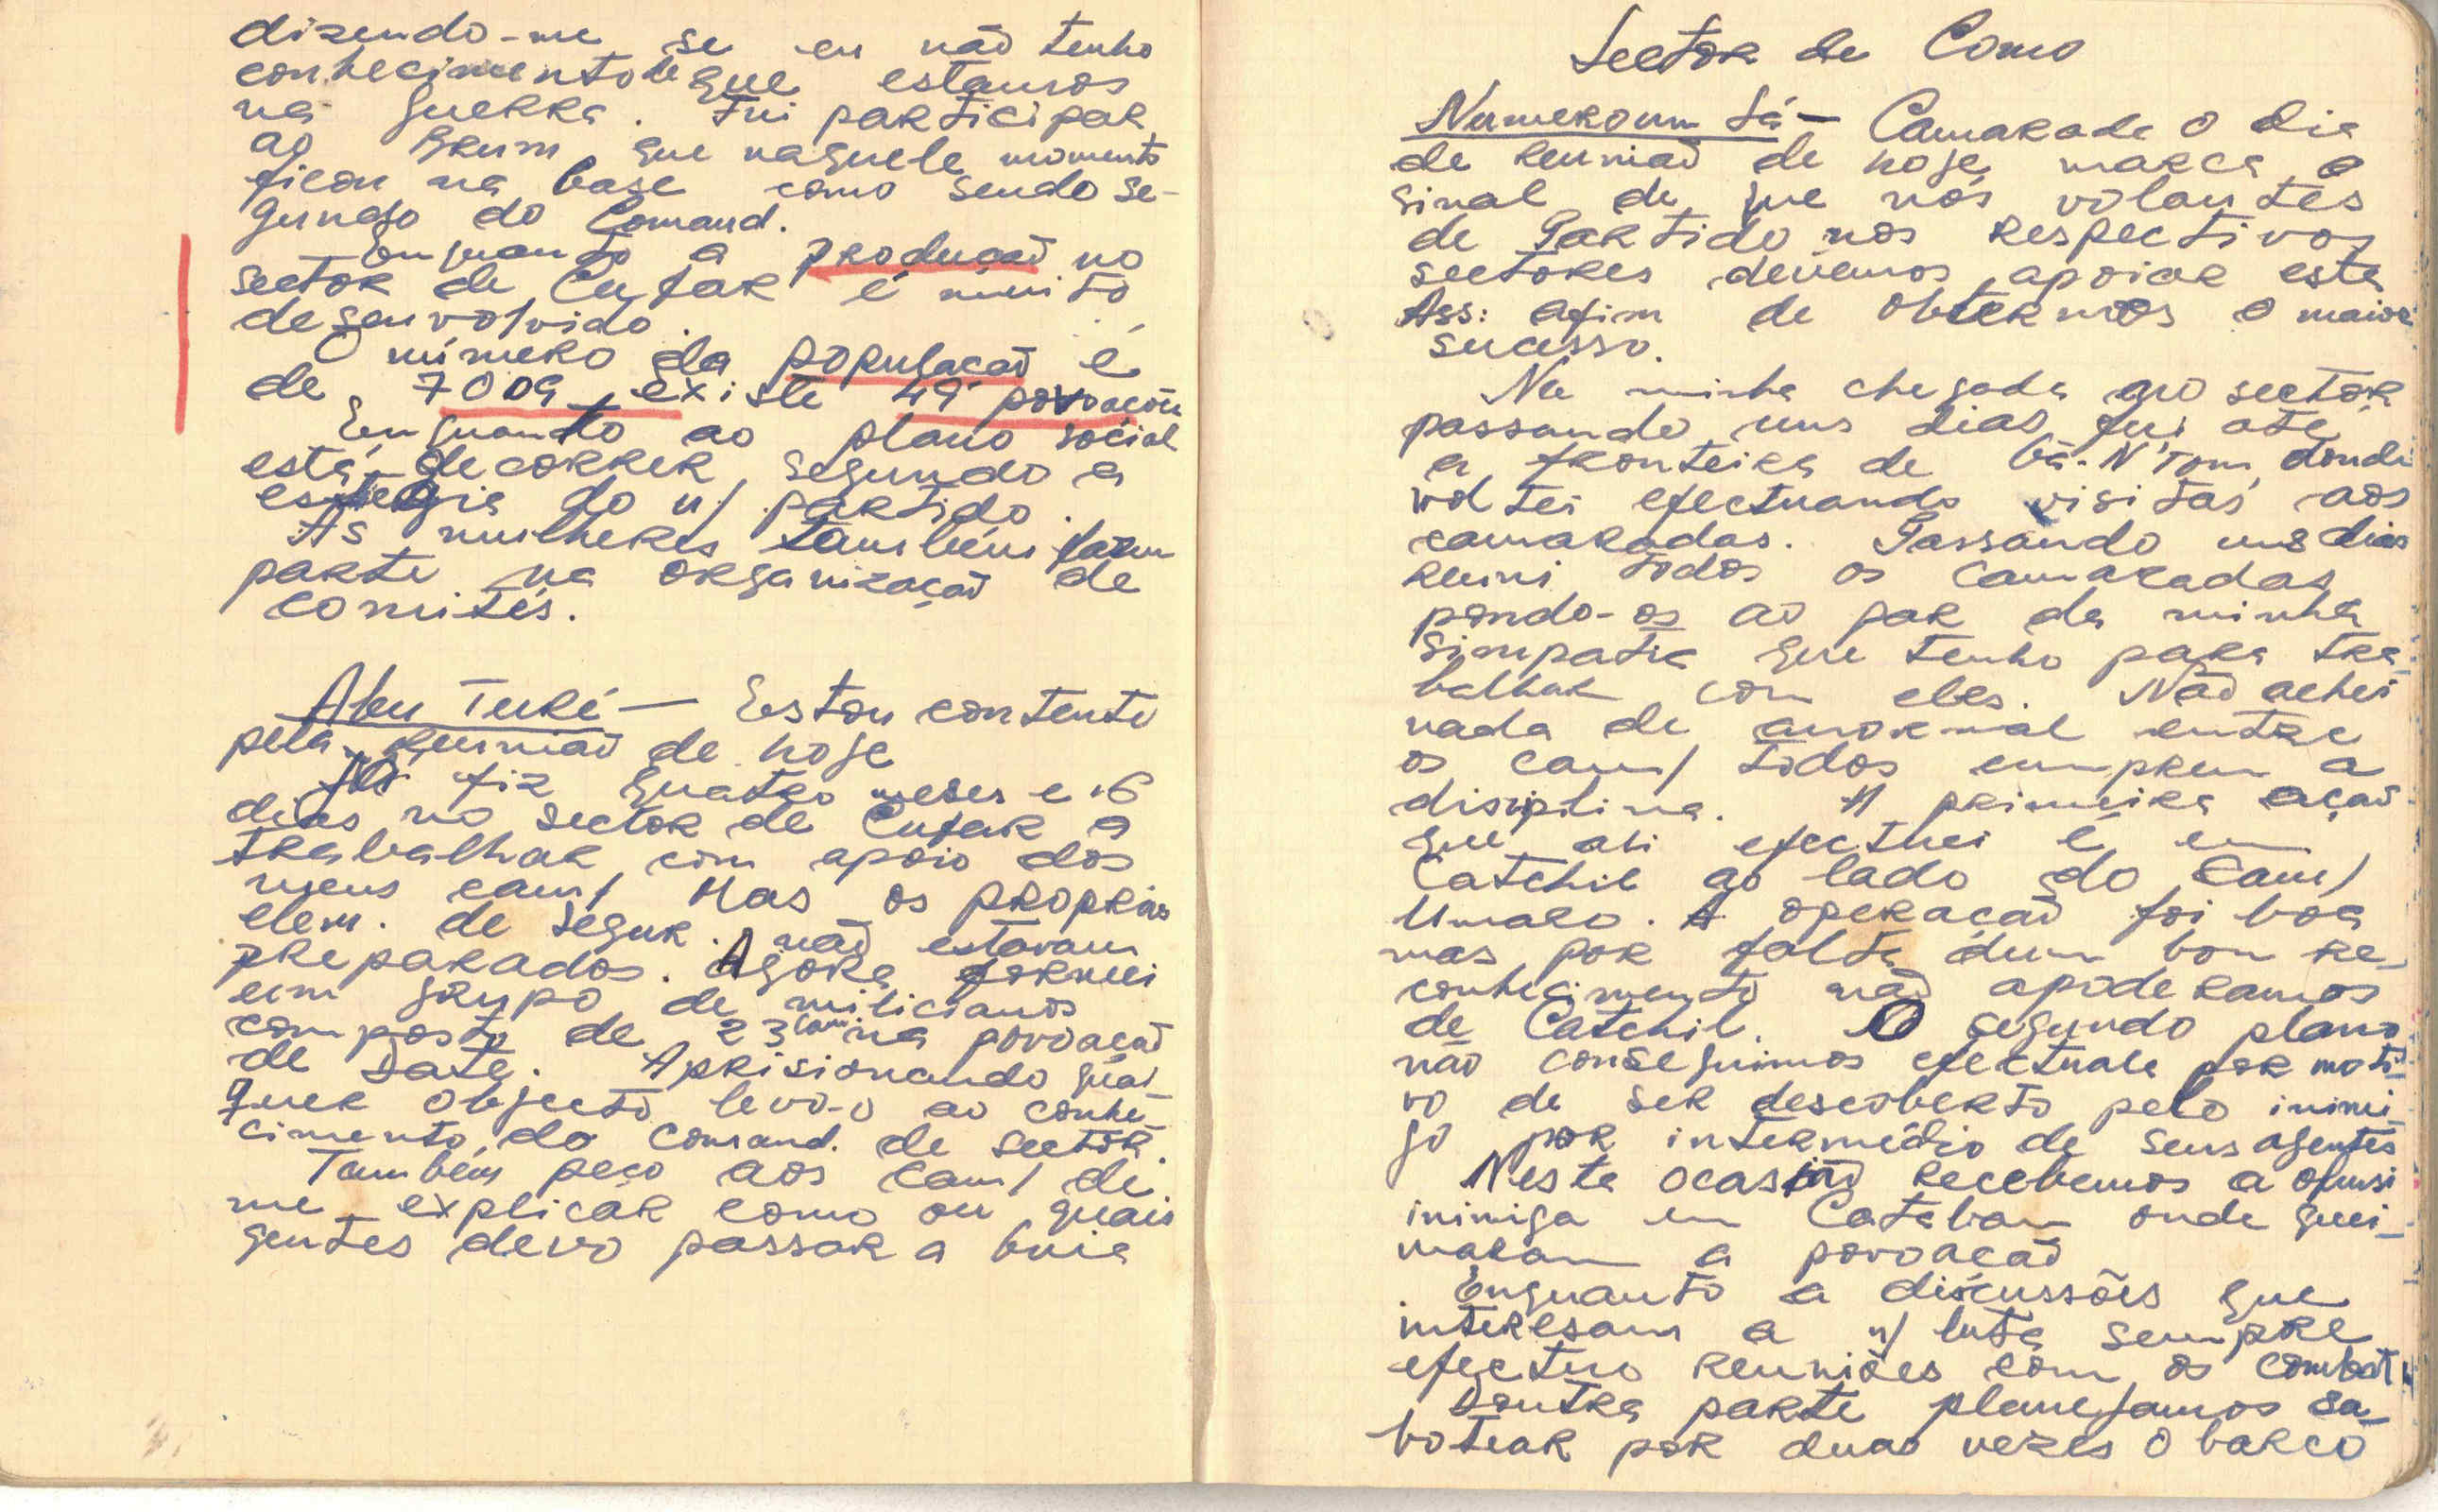 dizendo-me se eu não tenho
conhecimento de que estamos
na guerra. Fui participar
ao Brum que naquele momento
ficou na base como sendo se-
gundo do Comand.
Enquanto a produção no
sector de Cufar é muito
desenvolvido.
O número da população é
de 7009 existe 49 povoações
Enquanto ao plano social
está decorrer segundo a
do n/ partido.
As mulheres também fazem
parte na organização de
comités.
Abu Turé — Estou contente
pela reunião de hoje
Já fiz quatro meses e 16
dias no sector de Cufar a
trabalhar com apoio dos
meus cam/ Mas os proprios
elem. de segur. não estavam
preparados. Agora formei
um grupo de milicianos
composto de 23 cam. na povoação
de Date. Aprisionando qual-
quer objecto levo-o ao conhe-
cimento do Comand. de sector.
Também peço aos cam/ de
me explicar como ou quais
gentes devo passar a guia
Sector de Como
Numeroum Sá — Camarada O dia
de reunião de hoje marca o
sinal de que nós volantes
de Partido nos respectivos
sectores devemos apoiar esta
Ass: afim de obtermos o maior
sucesso.
Na minha chegada ao sector
passando uns dias fui até
a fronteira de Cá-N'Tom, donde
voltei efectuando visitas aos
camaradas. Passando uns dias
reuni todos os camaradas
pondo-os ao par da minha
simpatia que tenho para tra-
balhar com eles. Não achei
nada de anormal entre
os cam/ todos cumprem a
disiplina. A primeira ação
que ali efectuei é em
Catchil ao lado do Cam/
Umaro. A operação foi boa
mas por falta dum bom re-
conhecimento não apoderamos
de Catchil. O segundo plano
não conseguimos efectuar por moti-
vo de ser descoberto pelo inimi-
go por intermédio de seus agentes
Nesta ocasião recebemos a ofensi
inimiga em Catabam onde quei-
maram a povoação
Enquanto a discussões que
interesam a n/ luta sempre
efectuo reuniões com os combat
Doutra parte planejamos sa-
botear por duas vezes o barco